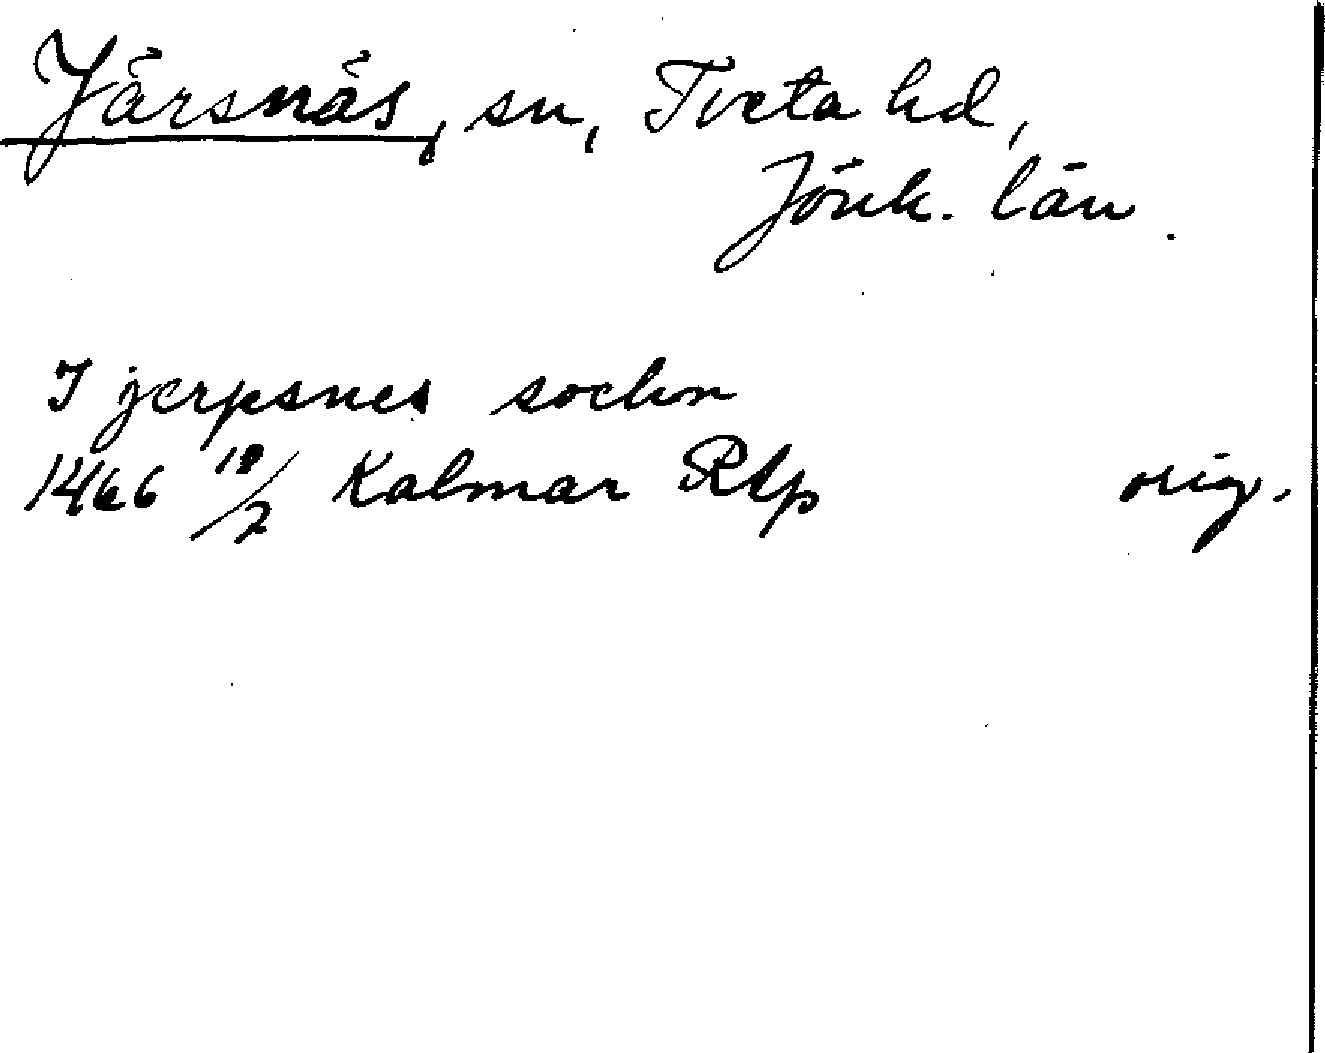 Järsnäs, sn, Tveta hd,
Jönk. län.
I jerpsnes sochn
1466 18/7 Kalmar Rtp orig.